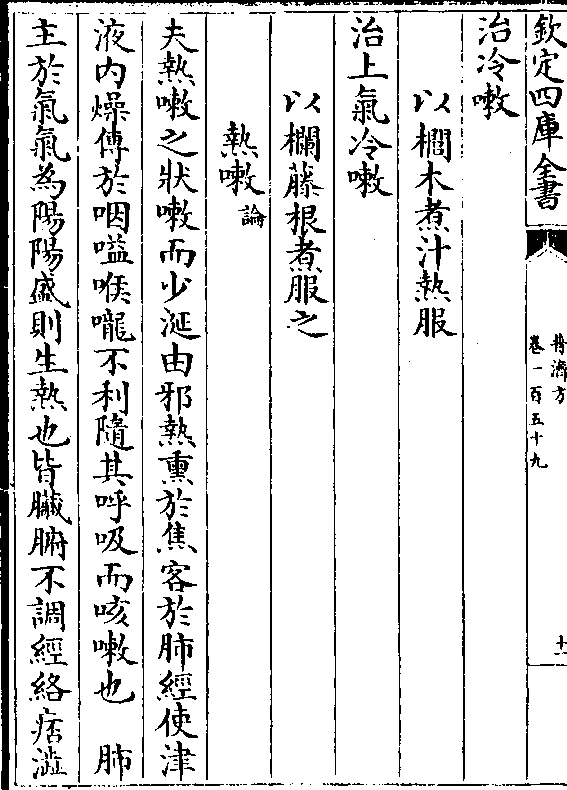 欽定四庫全書
普濟方
卷一百五十九
十一
治冷嗽
以櫚木煮汁熱服
治上氣冷嗽
以欄藤根煮服之
熱嗽論
夫熱嗽之狀嗽而少涎由邪熱熏於焦客於肺經使津
液内燥傳於咽嗌喉嚨不利隨其呼吸而咳嗽也　肺
主於氣氣為陽陽盛則生熱也皆臟腑不調經絡痞澁